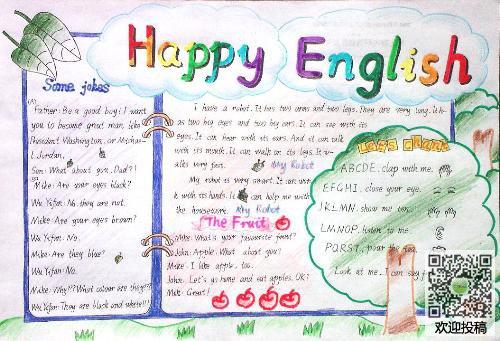 Happy English
Some jokes
Father: Be a good boy; I want
you to become great man, like
President Washington, or Michae-
l Jordan.
Son: What about gum, Dad?!
Mike: Are your eyes black?
Wu Yifan: No they are not.
Mike: Are your eyes brown?
Wu Yifan: No.
Mike: Are they blue?
Wu Yifan: No.
Mike: Why?? What colour are they???
Wu Yifan: They are black and white!!!
I have a robot. It has two arms and two legs. They are very long. It h-
as two big eyes and two big ears. It can see with its
eyes. It can hear with its ears. And it can talk
with its mouth. It can walk on its legs. It w-
alks very fast. My Robot
My robot is very smart. It can wor-
k with its hands. It can help me with
the housework. My Robot
The Fruit
Mike: What's your favourite food?
John: Apple. What about you?
Mike: I like apple, too.
John: Let's go home and eat apples. OK?
Mike: Great!
Let's chant
ABCDE. clap with me.
EFGHI. close your eye.
JKLMN. show me ten.
LMNOP. listen to
PQRST. pour the tea.
Look at me. I can say
欢迎投稿